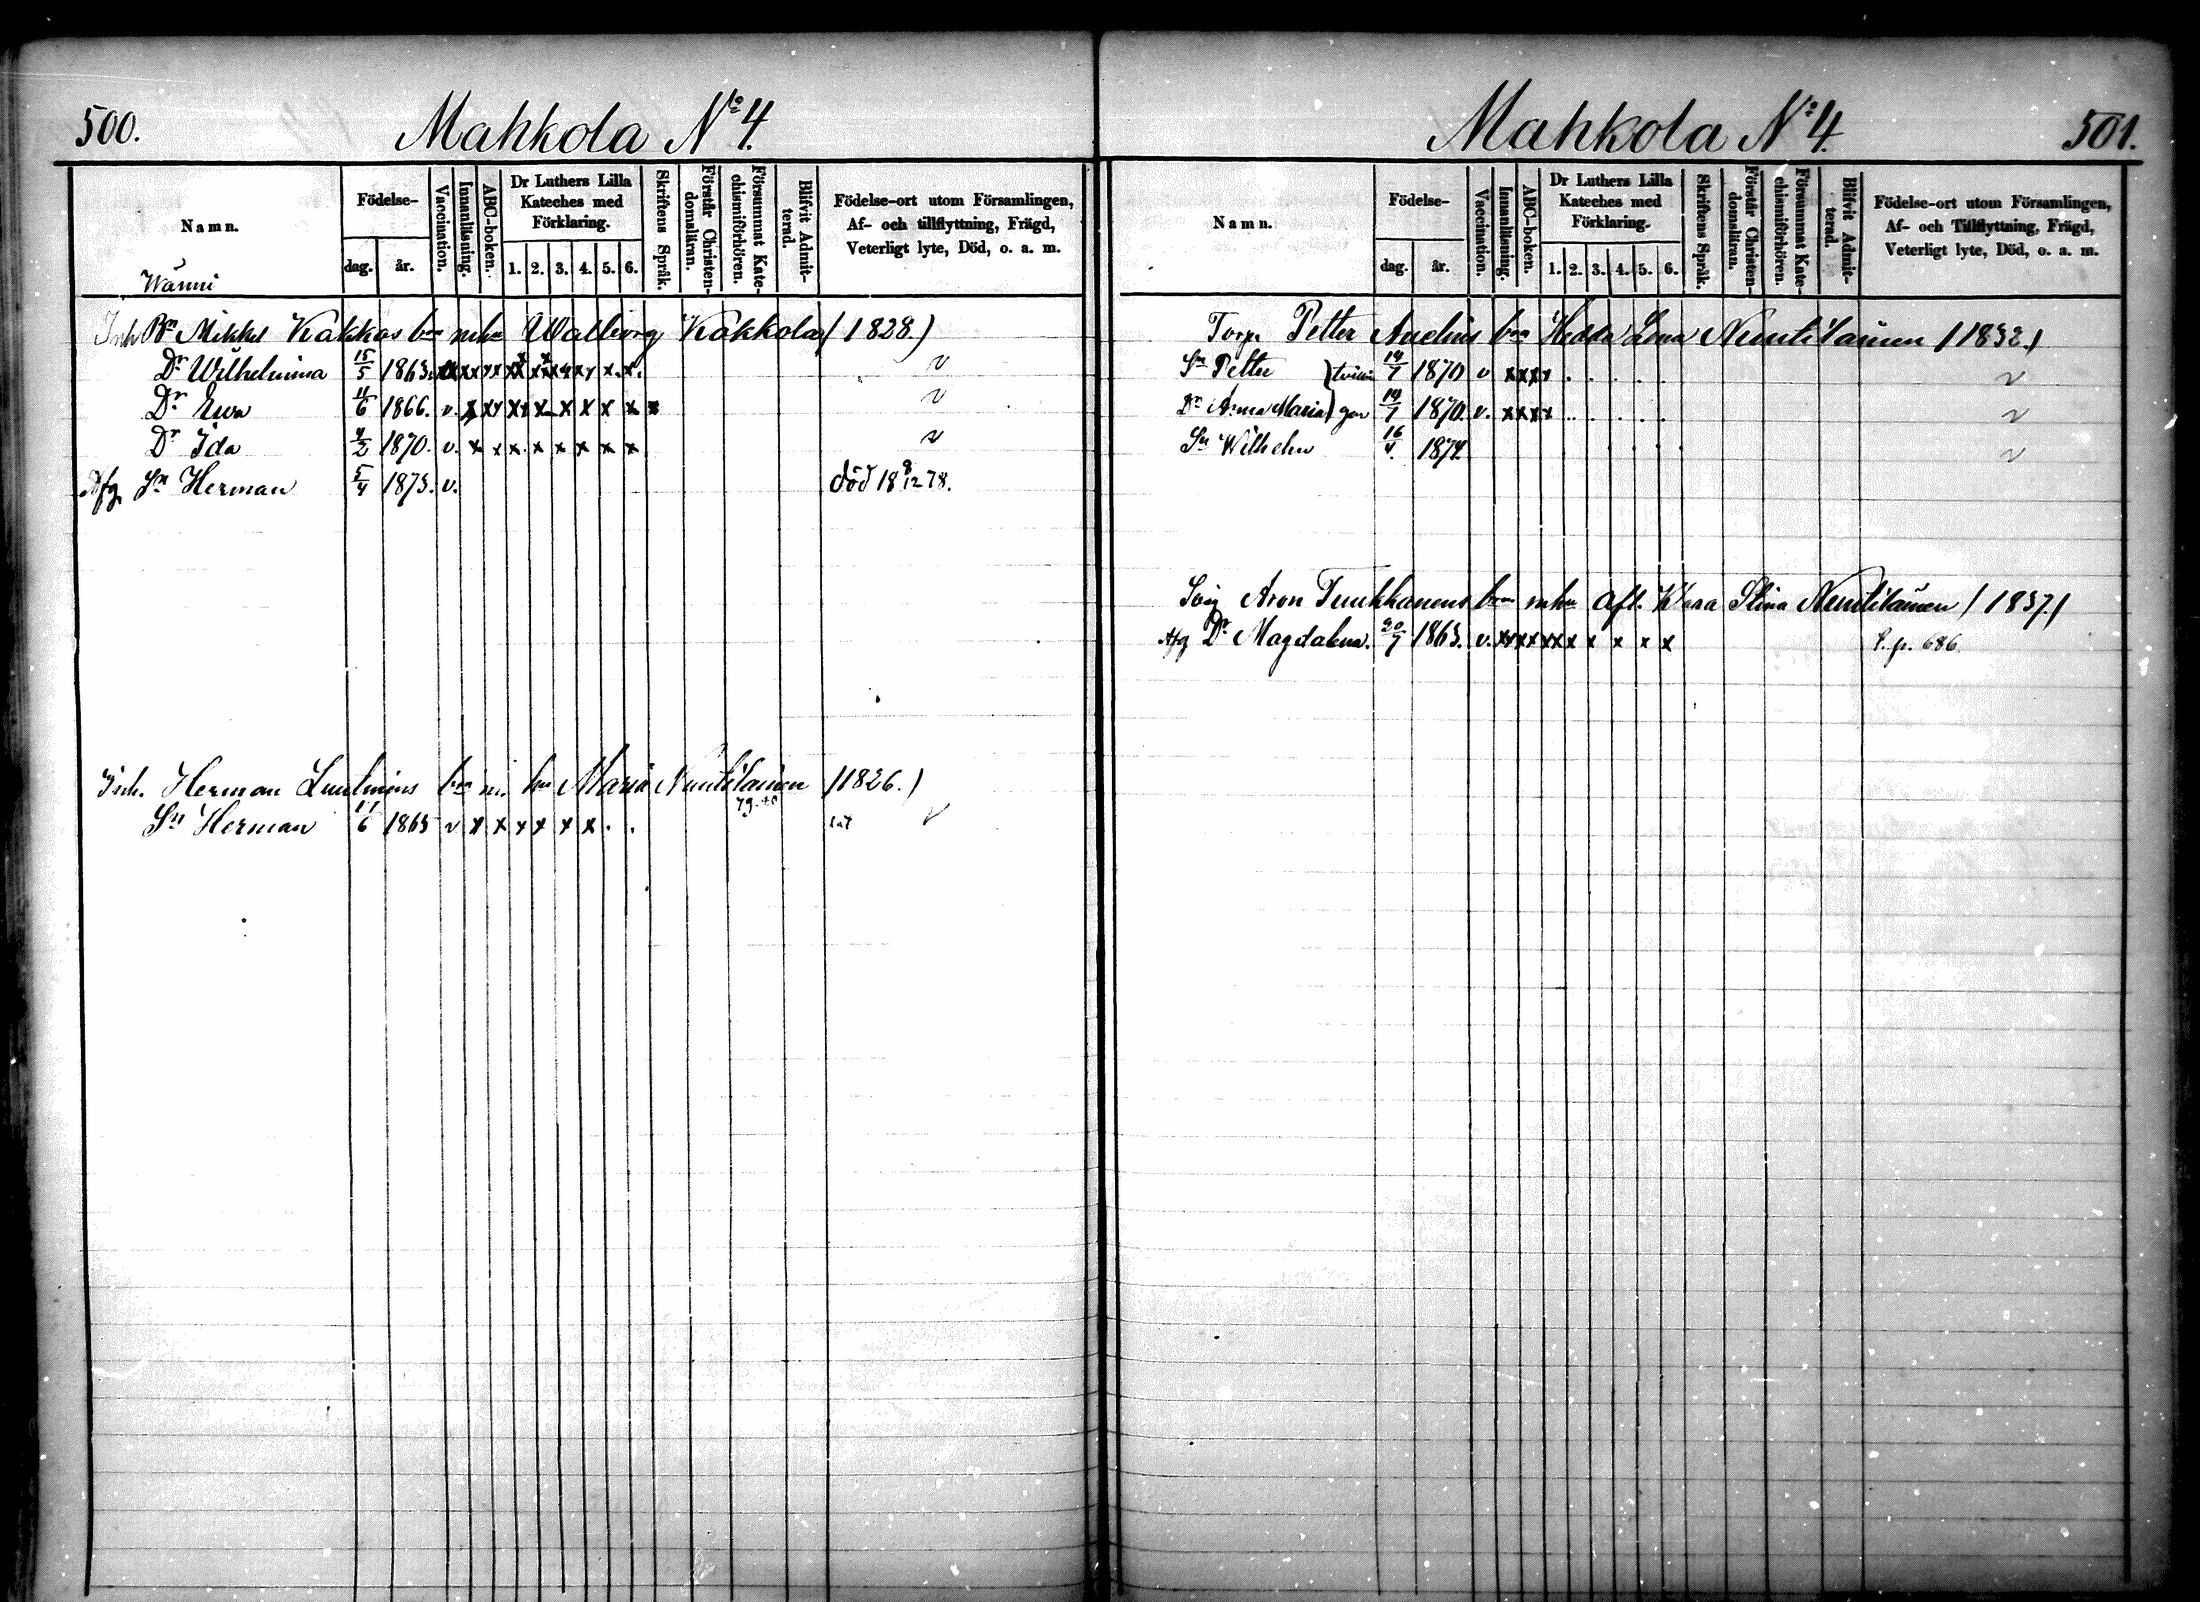 500.
Mahkola No 4.
Namn.
Födelse-
dag.
år.
Vaccination.
Innanläsning.
ABC-boken.
Dr Luthers Lilla
Kateches med
Förklaring.
1. 2. 3. 4. 5. 6.
Skriftens Språk.
Förstår Christen-
domsläran.
Försummat Kate-
chismiförhören.
Blifvit Admit-
terad.
Födelse-ort utom Församlingen,
Af- och tillflyttning, Frägd,
Veterligt lyte, Död, o. a. m.
Wänni
Inh Mikkel Kakkas Walborg Kakkola (1828.)
Dr Wilhelmina 15/5 1863. x x x x x x v
Dr Ewa 11/6 1866. v. x x x x x x x x v
Dr Ida 4/2 1870. v. x x x x x x x v
Afg. Sn Herman 5/4 1873. v. död 18 8/12 78.
Inh. Herman Maria Nuutilainen (1826.)
79.80
Sn Herman 11/6 1865 v x x x x x x . . v
Mahkola No 4.
501.
Namn.
Födelse-
dag.
år.
Vaccination.
Innanläsning.
ABC-boken.
Dr Luthers Lilla
Kateches med
Förklaring.
1. 2. 3. 4. 5. 6.
Skriftens Språk.
Förstår Christen-
domsläran.
Försummat Kate-
chismiförhören.
Blifvit Admit-
terad.
Födelse-ort utom Församlingen,
Af- och Tillflyttning, Frägd,
Veterligt lyte, Död, o. a. m.
Torp. Petter Hedda Lena Nuutilainen (1832.)
Sn Petter 14/7 1870 v x x x x . . . . . v
Dr Anna Maria 14/7 1870. v. x x x x . . . . . v
Sn Wilhelm 1874 v
Aron Turkkanens Klara Stina Nuutilainen (1837.)
Afg Dr Magdalena. 20/7 1863. v. x x x x x x x x x x P. p. 686.